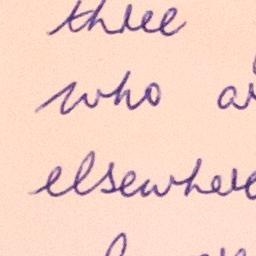 three
who
elsewhere